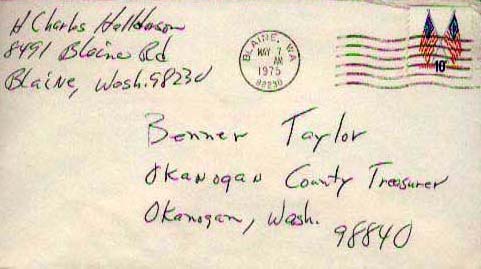 H Charles Halldorson
8491 Blaine Rd
Blaine, Wash. 98230
BLAINE, WA
MAY 7
AM
1975
98230
10c
Benner Taylor
Okanogan County Treasurer
Okanogan, Wash.
98840